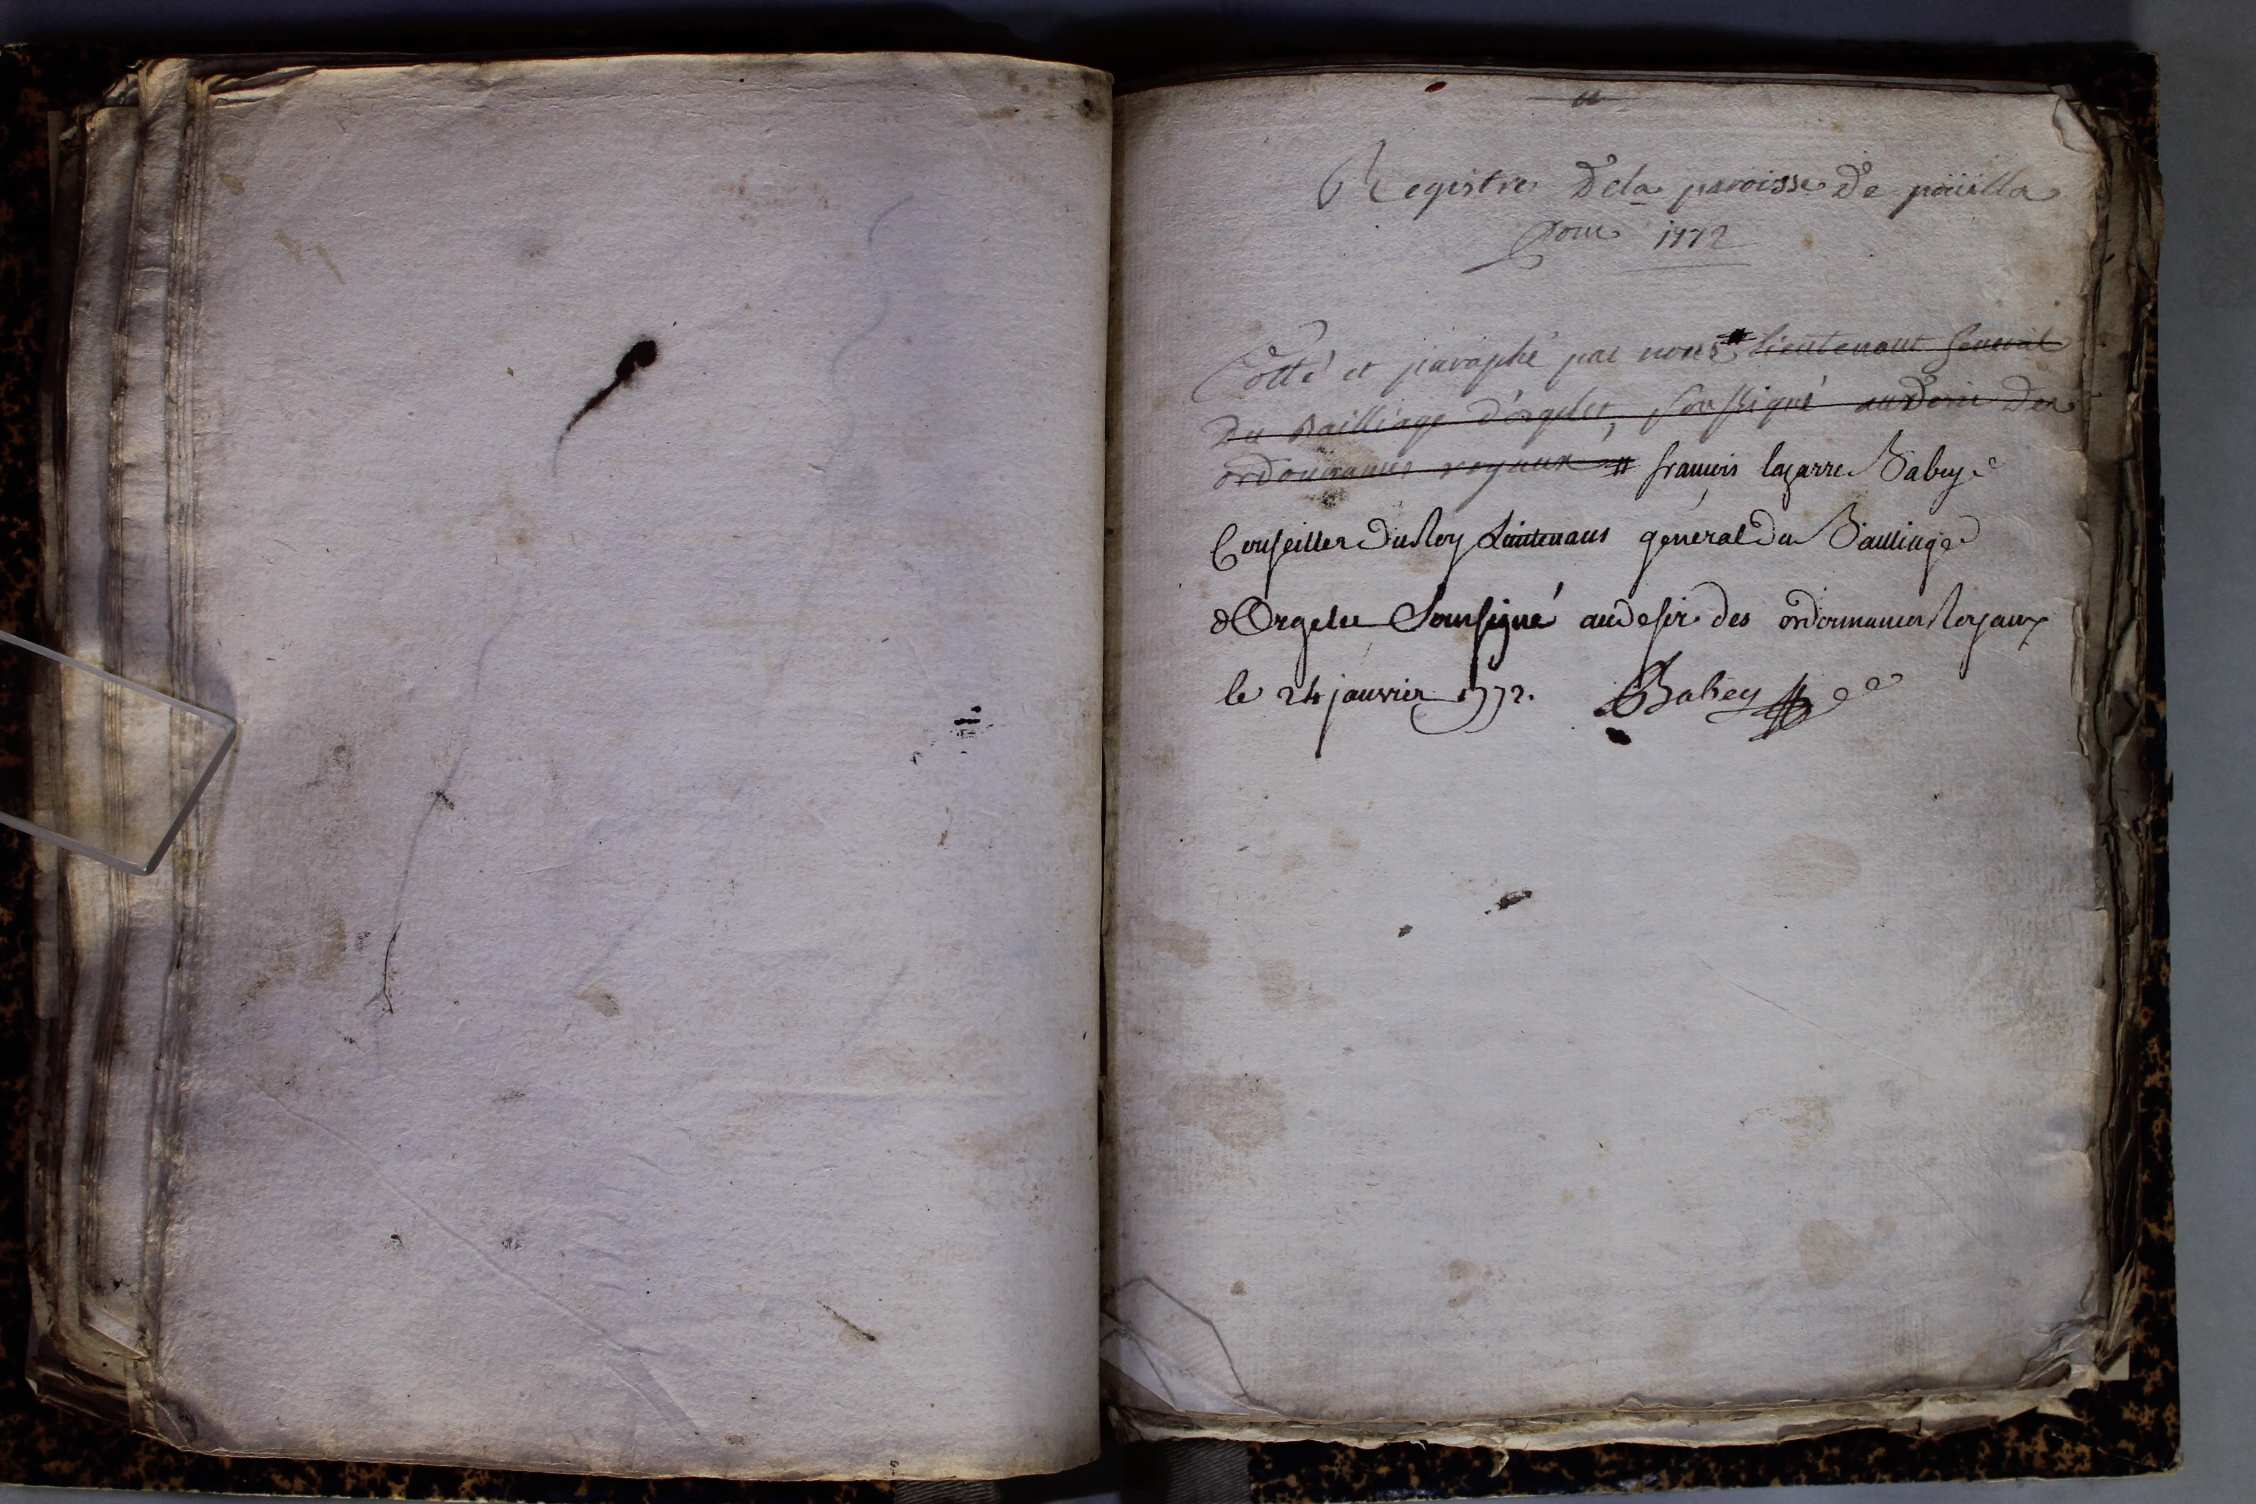 Registre dela paroisse de poüilla
Pour 1772
Cotté et paraphé par nous Lieutenant general
du Bailliage d'orgelet, soussigné au desir des
ordonnances royaux françois lazarre Babey
Conseiller du Roy Lieutenant général du Bailliage
d'Orgelet Soussigné au desir des ordonnances Royaux
le 24 janvier 1772. Babey